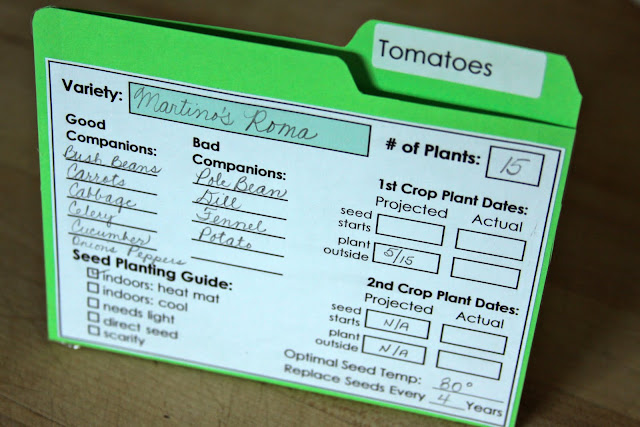 Tomatoes
Variety: Martino's Roma
# of Plants: 15
Good
Companions:
Bush Beans
Carrots
Cabbage
Celery
Cucumber
Onions Peppers
Bad
Companions:
Pole Bean
Dill
Fennel
Potato
Seed Planting Guide:
indoors: heat mat
indoors: cool
needs light
direct seed
scarify
1st Crop Plant Dates:
Projected Actual
seed
starts
plant
outside 5/15
2nd Crop Plant Dates:
Projected Actual
seed
starts N/A
plant
outside N/A
Optimal Seed Temp: 80°
Replace Seeds Every 4 Years